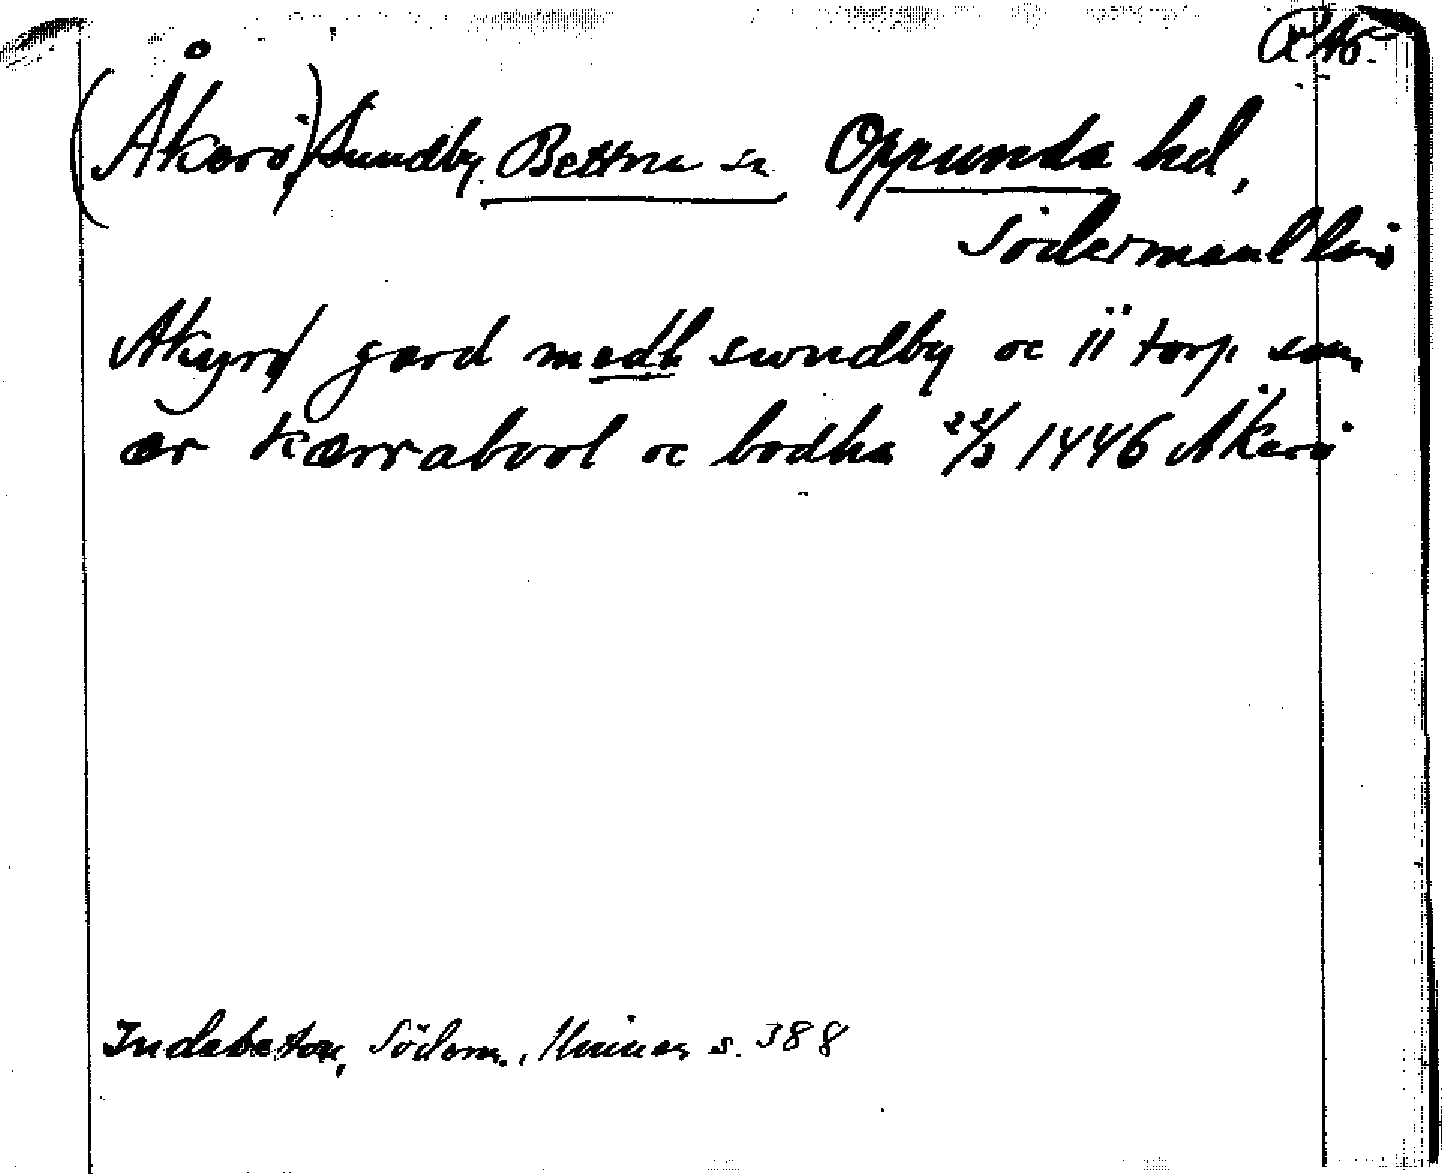 (Åkerö) Sundby Bettna sn Oppunda hd,
Södermanl län
Akyrø gard medh swndby oc ii torp som
ær kærrabool oc bodha 22/3 1446 Åkerö
Indebetou, Söderm. Minnen s. 388